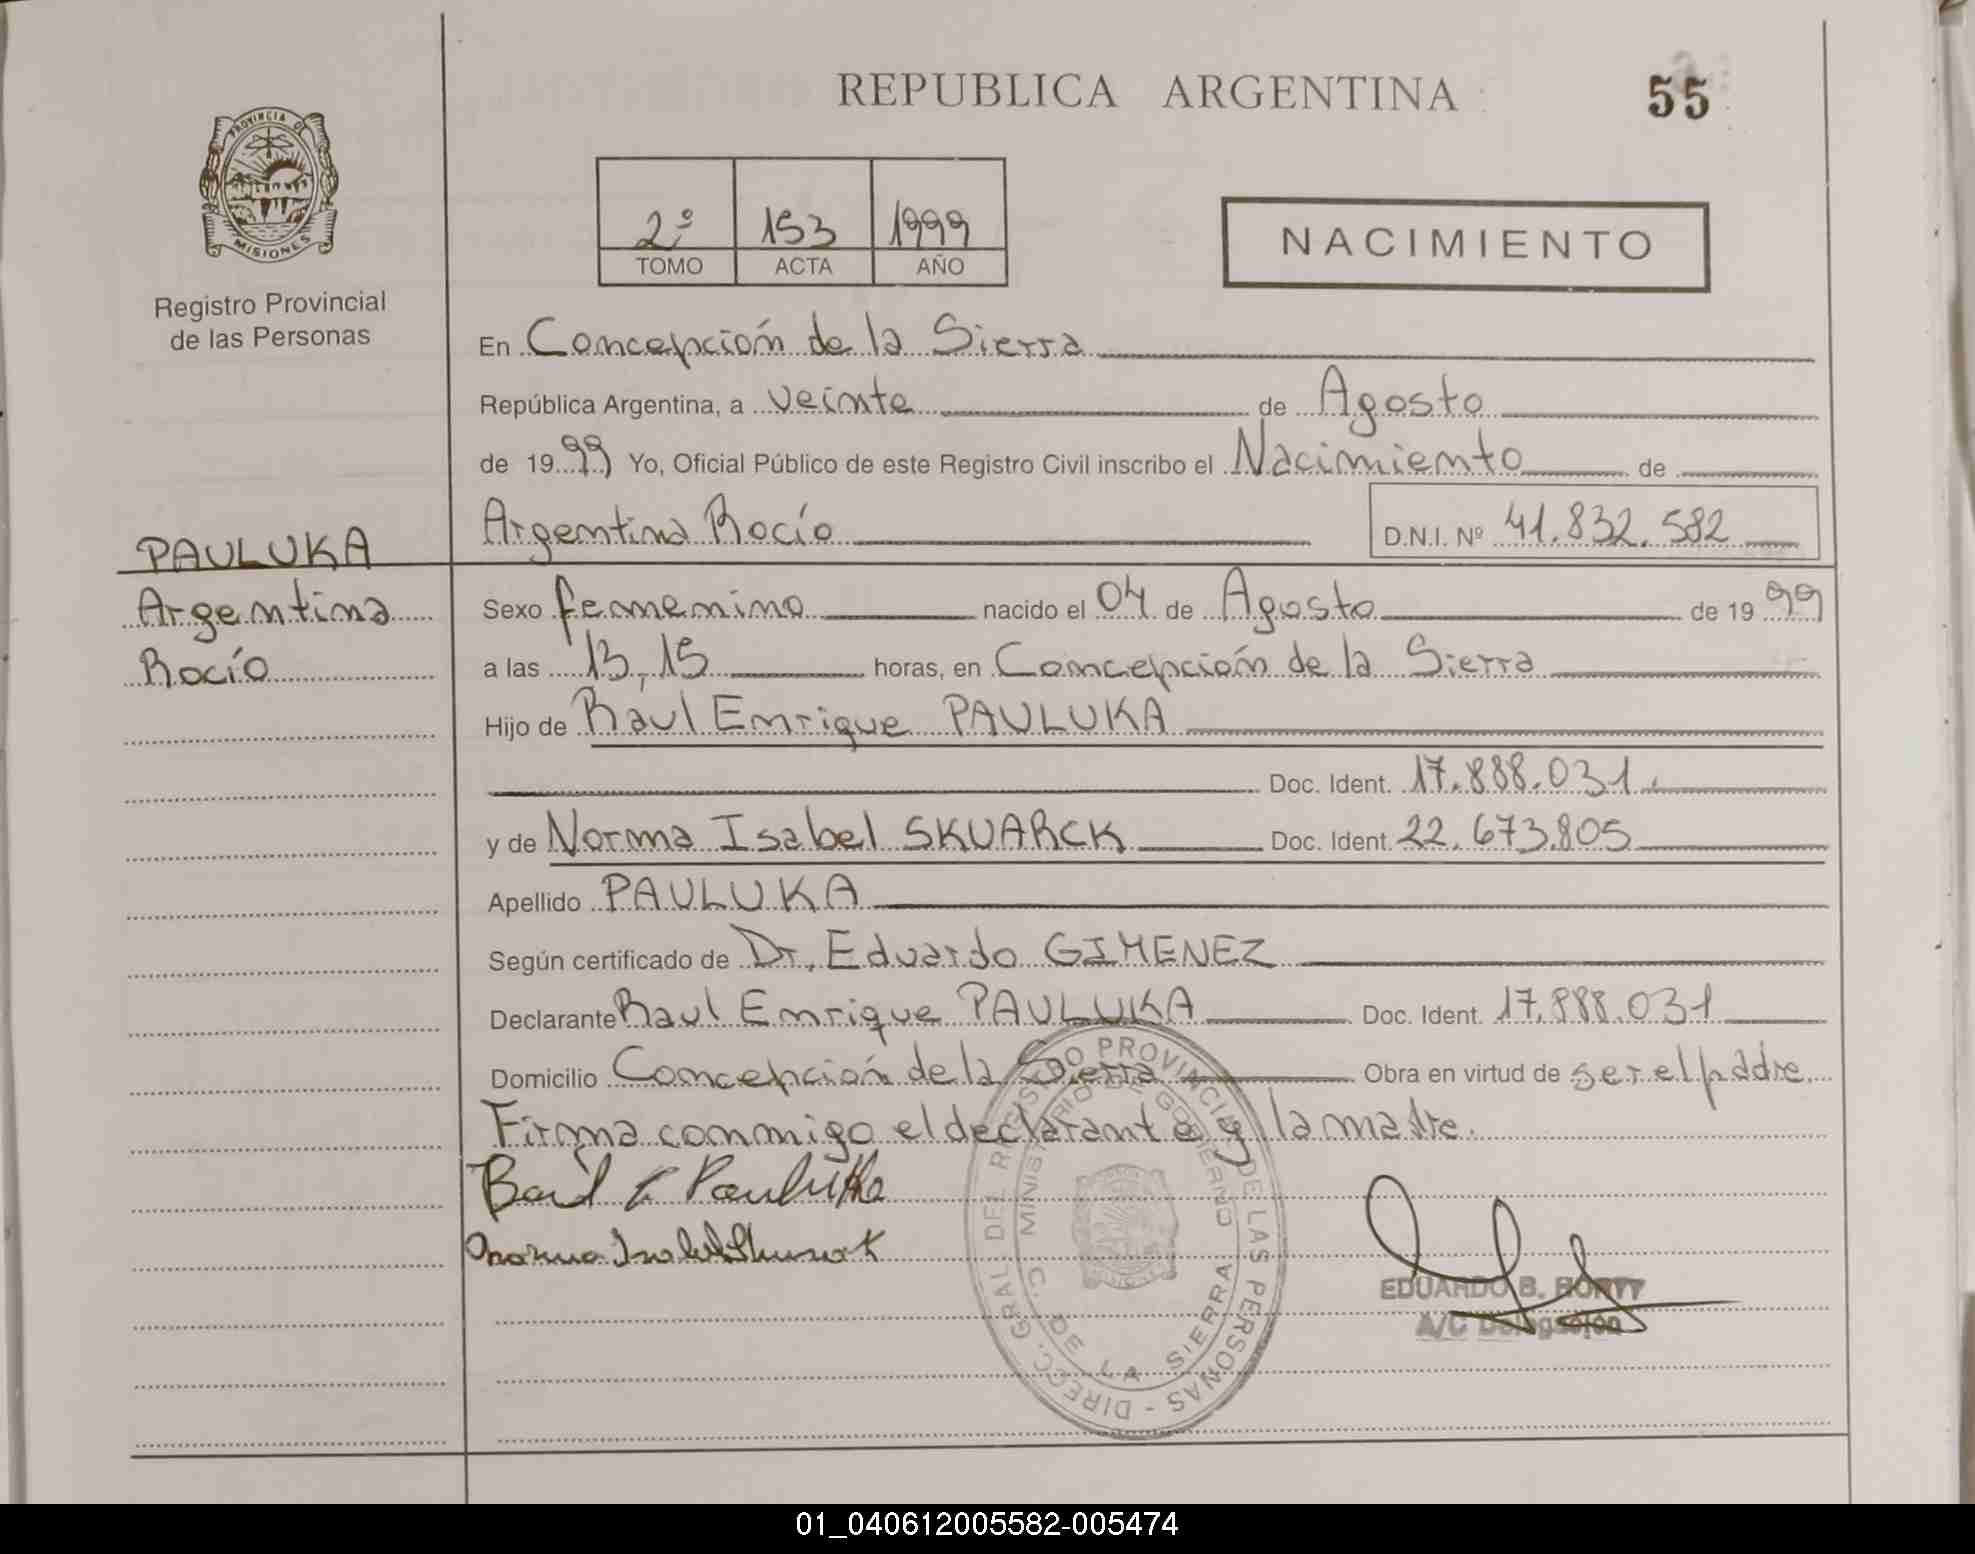 REPUBLICA ARGENTINA
55
PROVINCIA DE
MISIONES
Registro Provincial
de las Personas
2º 153 1999
TOMO ACTA AÑO
NACIMIENTO
En Concepción de la Sierra
República Argentina, a veinte de Agosto
de 1999 Yo, Oficial Público de este Registro Civil inscribo el Nacimiento de
Argentina Rocío D.N.I. Nº 41.832.582
PAULUKA
Argentina
Rocío
Sexo femenino nacido el 04 de Agosto de 1999
a las 13,15 horas, en Concepción de la Sierra
Hijo de Raul Enrique PAULUKA
Doc. Ident. 17.888.031.
y de Norma Isabel SKUARCK Doc. Ident. 22.673.805
Apellido PAULUKA
Según certificado de Dr. Eduardo GIMENEZ
Declarante Raul Enrique PAULUKA Doc. Ident. 17.888.031
Domicilio Concepción de la Sierra Obra en virtud de ser el padre.
Firma conmigo el declarante y la madre.
DIRECC. GRAL DEL REGISTRO PROVINCIAL DE LAS PERSONAS -
MINISTERIO DE GOBIERNO
C. DE LA SIERRA
EDUARDO B.
A/C Delegación
01_040612005582-005474